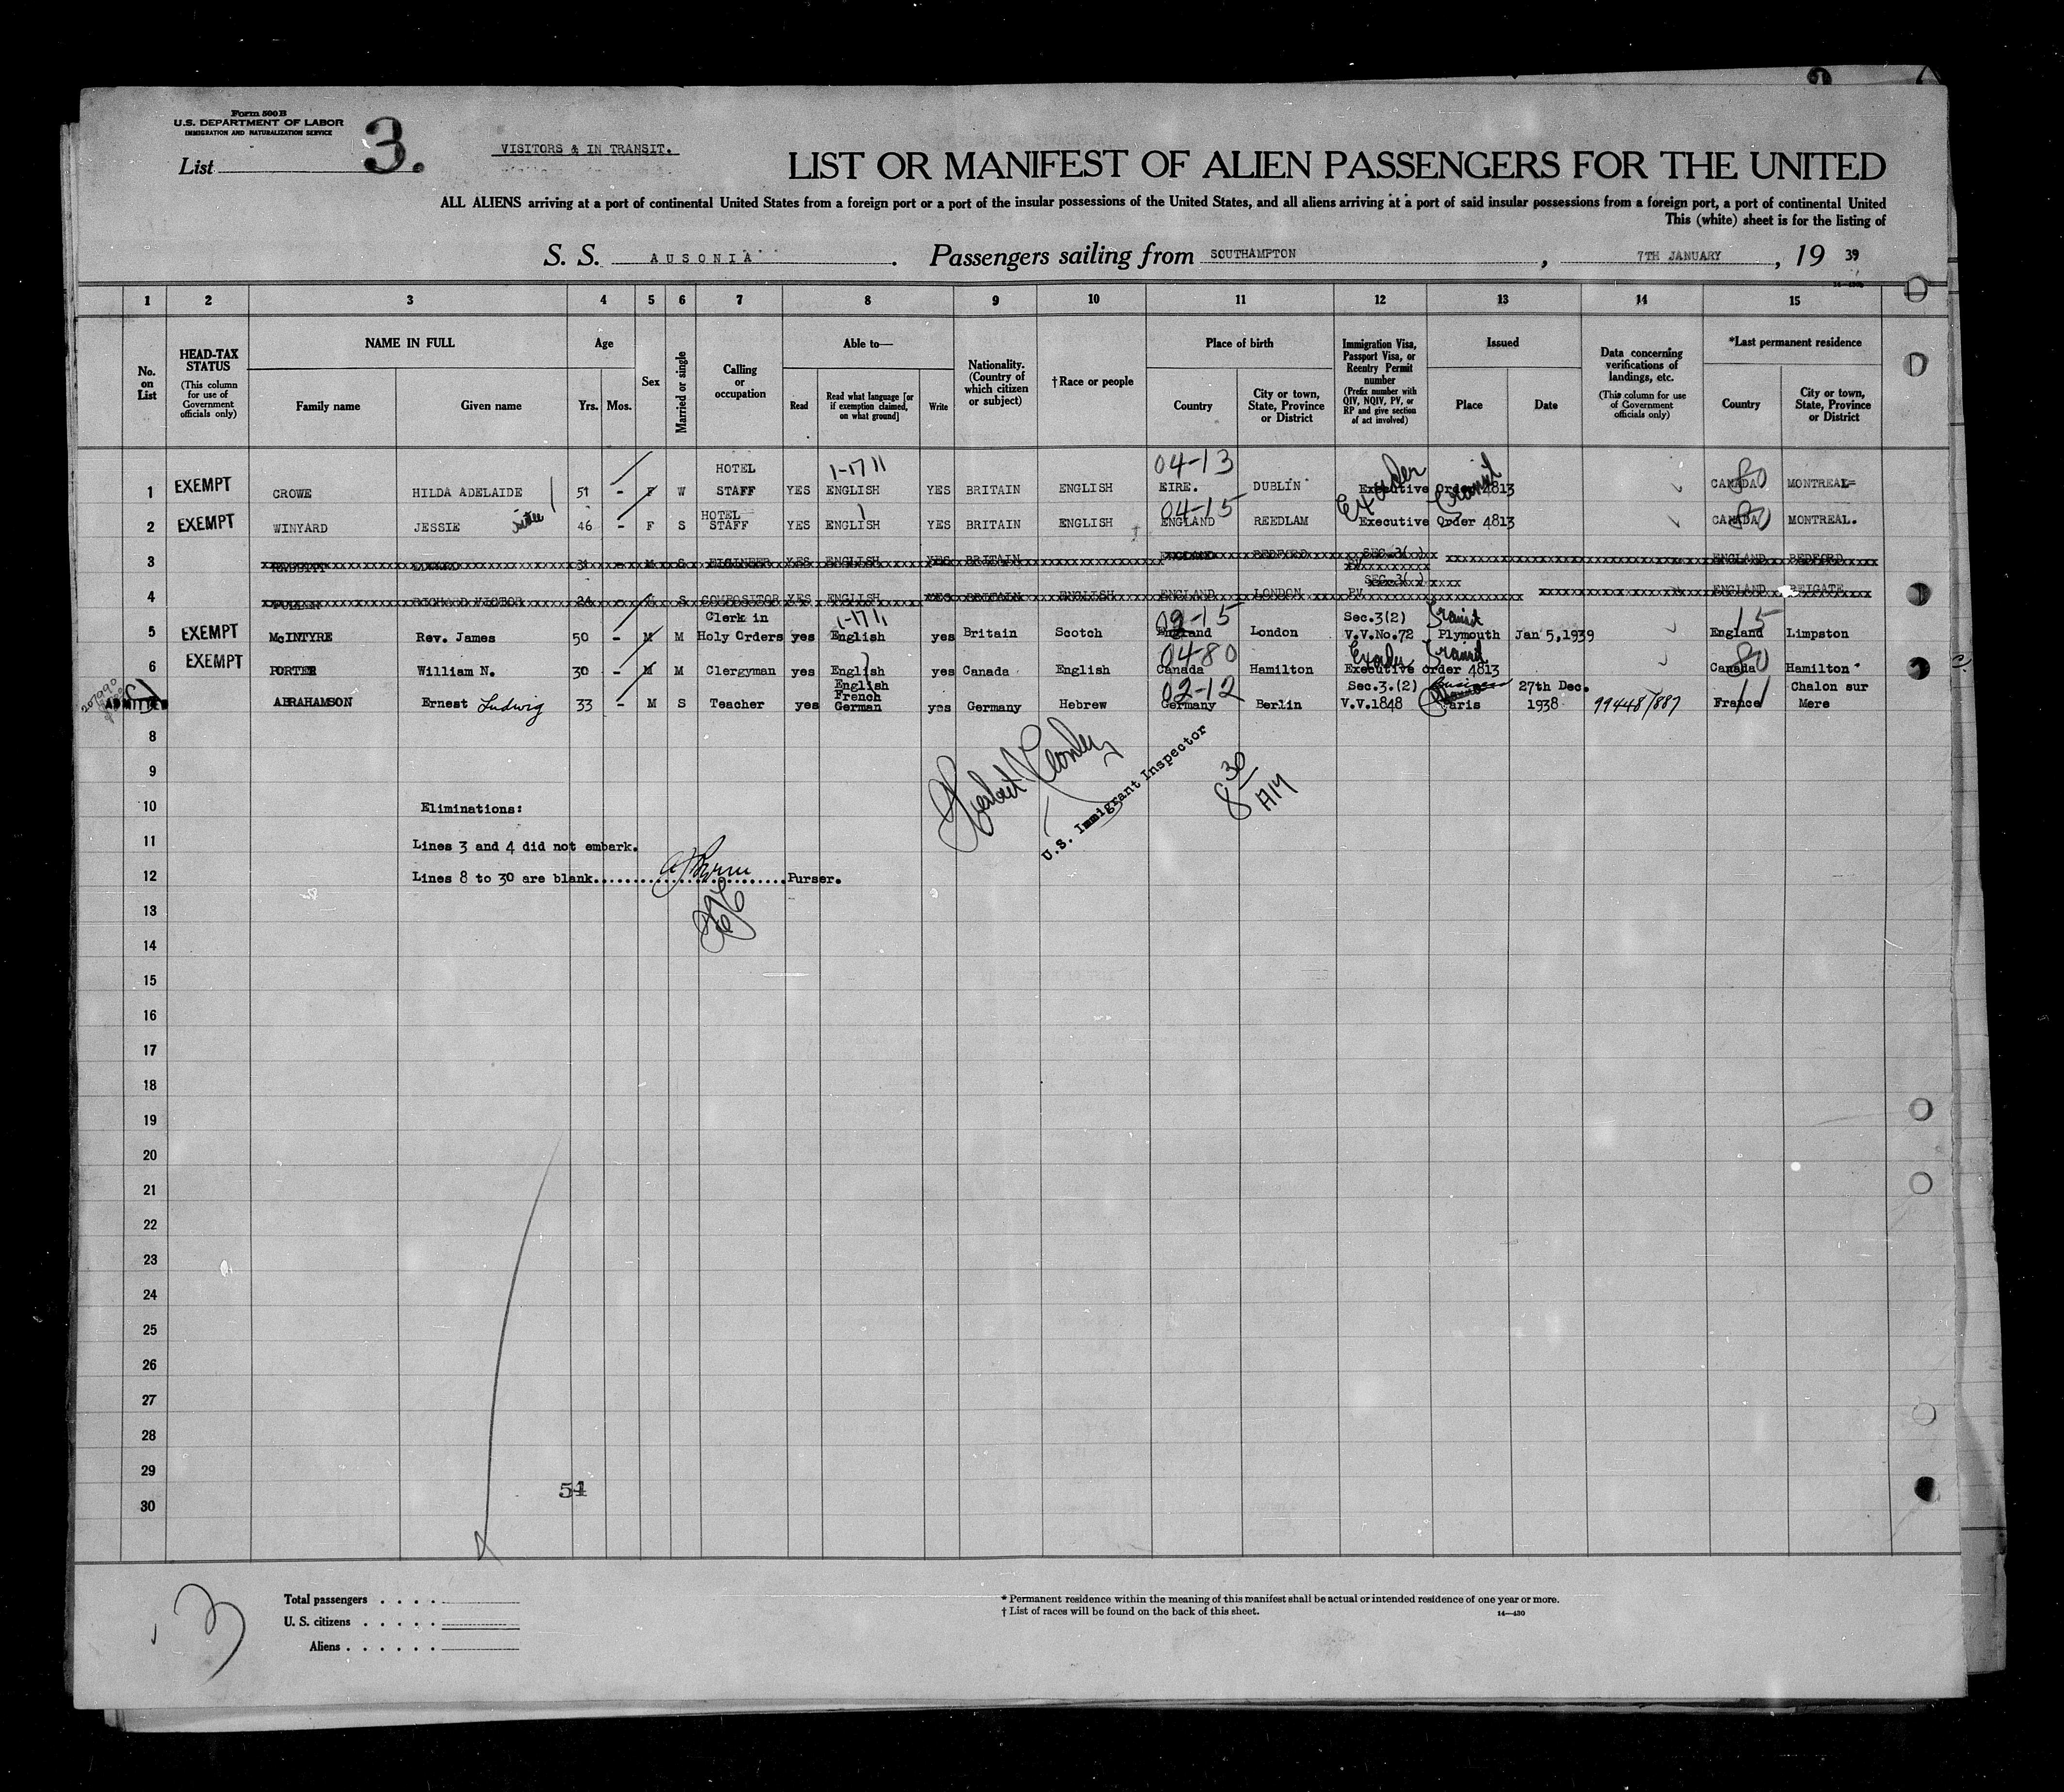 Form 500 B
U.S. DEPARTMENT OF LABOR
IMMIGRATION AND NATURALIZATION SERVICE
List 3.
VISITORS & IN TRANSIT.
LIST OR MANIFEST OF ALIEN PASSENGERS FOR THE UNITED
ALL ALIENS arriving at a port of continental United States from a foreign port or a port of the insular possessions of the United States, and all aliens arriving at a port of said insular possessions from a foreign port, a port of continental United
This (white) sheet is for the listing of
S. S. AUSONIA. Passengers sailing from SOUTHAMPTON, 7TH JANUARY, 19 39
1 2 3 4 5 6 7 8 9 10 11 12 13 14 15
No. on List
HEAD-TAX STATUS (This column for use of Government officials only)
NAME IN FULL Family name Given name
Age Yrs. Mos.
Sex
Married or single
Calling or occupation
Able to— Read Read what language [or if exemption claimed, on what ground] Write
Nationality. (Country of which citizen or subject)
†Race or people
Place of birth Country City or town, State, Province or District
Immigration Visa, Passport Visa, or Reentry Permit number (Prefix number with QIV, NQIV, PV, or RP and give section of act involved)
Issued Place Date
Data concerning verifications of landings, etc. (This column for use of Government officials only)
*Last permanent residence Country City or town, State, Province or District
1-1711 04-13
1 EXEMPT CROWE HILDA ADELAIDE 51 - F W HOTEL STAFF YES ENGLISH YES BRITAIN ENGLISH EIRE. DUBLIN Executive Order 4813 Transit CANADA 80 MONTREAL
04-15
2 EXEMPT WINYARD JESSIE 46 - F S HOTEL STAFF YES ENGLISH YES BRITAIN ENGLISH ENGLAND REEDLAM Executive Order 4813 CANADA 80 MONTREAL.
3 RABBITT EDWARD 31 - M S ENGINEER YES ENGLISH YES BRITAIN ENGLAND BEDFORD SEC.3( ) ENGLAND BEDFORD
4 FULLER RICHARD VICTOR 24 - M S COMPOSITOR YES ENGLISH YES BRITAIN ENGLISH ENGLAND LONDON SEC.3( ) PV. ENGLAND REIGATE
1-1711
5 EXEMPT McINTYRE Rev. James 50 - M M Clerk in Holy Orders yes English yes Britain Scotch England London Sec.3(2) V.V.No.72 Transit Plymouth Jan 5,1939 England 15 Limpston
04-80
6 EXEMPT PORTER William N. 30 - M M Clergyman yes English yes Canada English Canada Hamilton Executive order 4813 Transit Canada 80 Hamilton
02-12
ADMITTED ABRAHAMSON Ernest Ludwig 33 - M S Teacher yes English French German yes Germany Hebrew Germany Berlin Sec.3.(2) V.V.1848 Business Paris 27th Dec. 1938 99448/887 France 11 Chalon sur Mere
8
9
U.S. Immigrant Inspector
8 30 AM
10 Eliminations:
11 Lines 3 and 4 did not embark.
12 Lines 8 to 30 are blank.....Purser.
13
14
15
16
17
18
19
20
21
22
23
24
25
26
27
28
29
54
30
3
Total passengers . . . .
U. S. citizens . . . . .
Aliens . . . . . .
* Permanent residence within the meaning of this manifest shall be actual or intended residence of one year or more.
† List of races will be found on the back of this sheet.
14—430